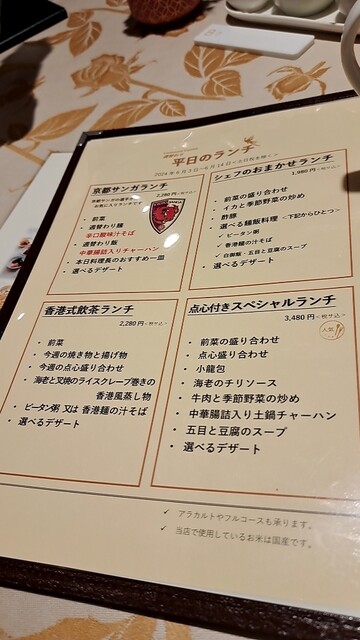 平日のランチ
2024年6月3日~6月14日<土日祝を除く>
京都サンガランチ
2,280円<税サ込>
京都サンガの選手も
お気に入りランチです
前菜
週替わり麺
辛口酸味汁そば
週替わり飯
中華腸詰入りチャーハン
本日料理長のおすすめ一皿
選べるデザート
シェフのおまかせランチ
1,980円<税サ込>
前菜の盛り合わせ
イカと季節野菜の炒め
酢豚
選べる麺飯料理 <下記からひとつ>
✓ ピータン粥
✓ 香港麺の汁そば
✓ 白御飯・五目と豆腐のスープ
選べるデザート
香港式飲茶ランチ
2,280円<税サ込>
前菜
今週の焼き物と揚げ物
今週の点心盛り合わせ
海老と叉焼のライスクレープ巻きの
香港風蒸し物
ピータン粥 又は 香港麺の汁そば
選べるデザート
点心付きスペシャルランチ
3,480円<税サ込>
人気
前菜の盛り合わせ
点心盛り合わせ
小籠包
海老のチリソース
牛肉と季節野菜の炒め
中華腸詰入り土鍋チャーハン
五目と豆腐のスープ
選べるデザート
✓ アラカルトやフルコースも承ります。
✓ 当店で使用しているお米は国産です。